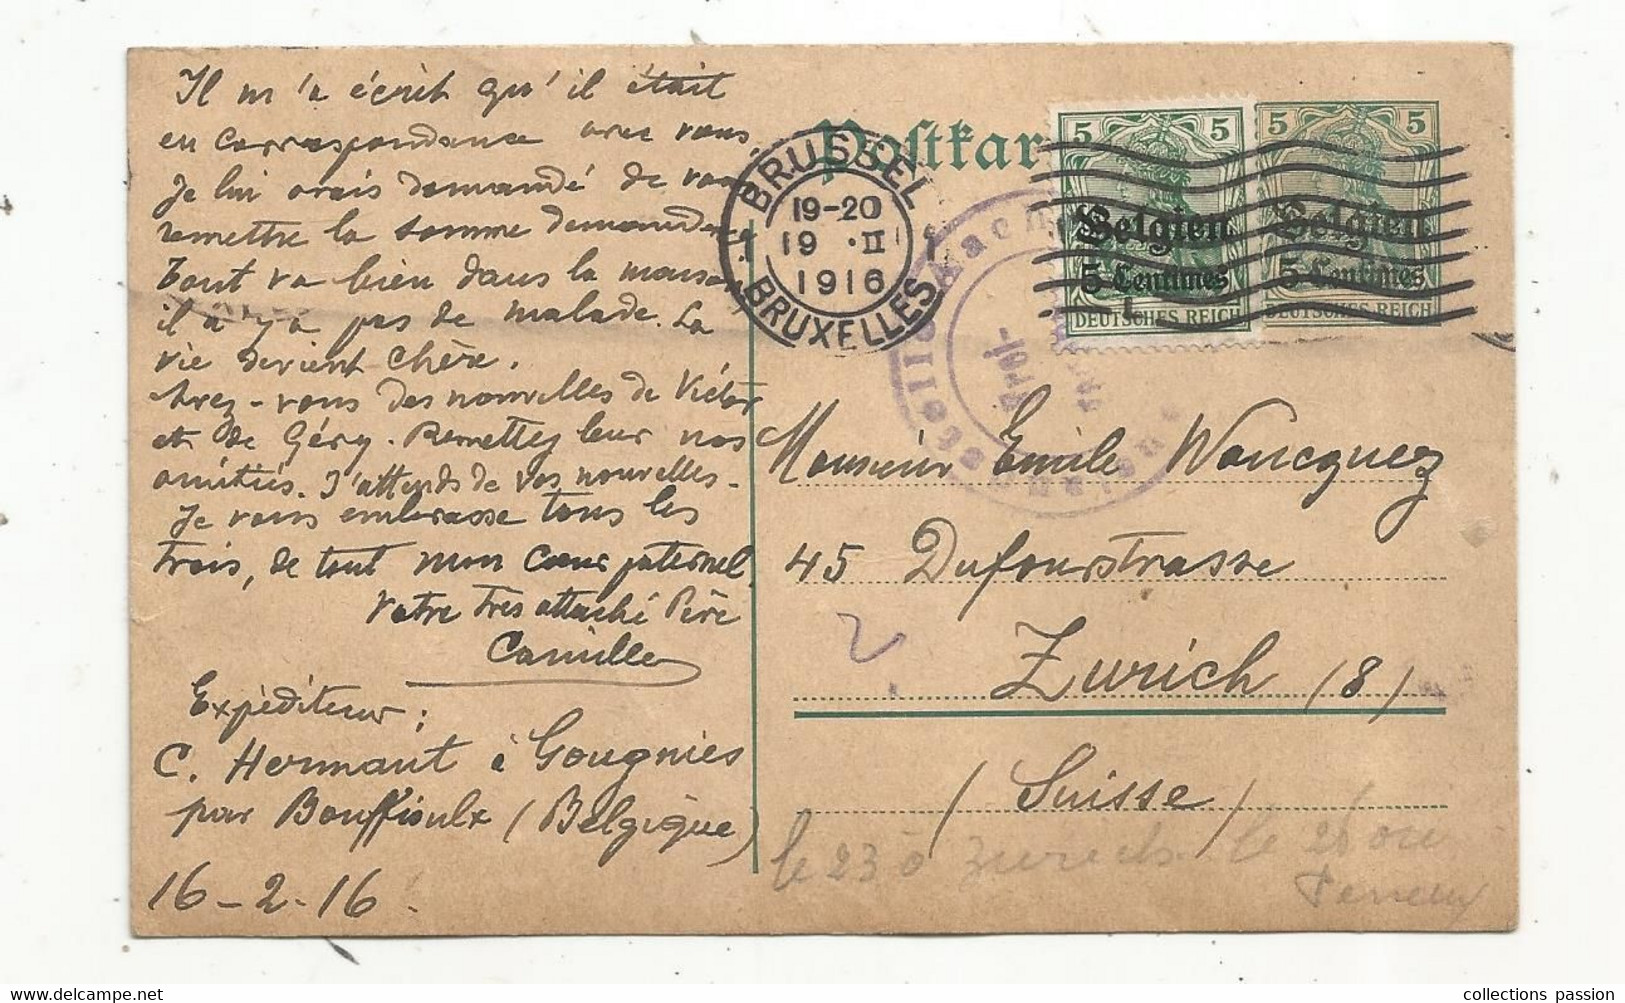 Il m'a écrit qu'il était
en correspondance avec vous.
Je lui avais demandé de vous
remettre la somme demandée.
Tout va bien dans la maison,
il n'y a pas de malade. La
vie devient chère.
Avez-vous des nouvelles de Victor
et de Géry. Remettez leur nos
amitiés. J'attends de vos nouvelles.
Je vous embrasse tous les
trois, de tout mon cœur paternel.
Votre très attaché Père
Camille
Expéditeur :
C. Hermant à Gougnies
par Bouffioulx (Belgique)
16-2-16
Postkar
BRUSSEL
19-20
19 · II
1916
BRUXELLES
5 5
Belgien
5 Centimes
DEUTSCHES REICH
5 5
Belgien
5 Centimes
DEUTSCHES REICH
Monsieur Emile Wancquez
45 Dufourstrasse
Zurich (8)
(Suisse)
le 23 à Zurich. le
collections passion